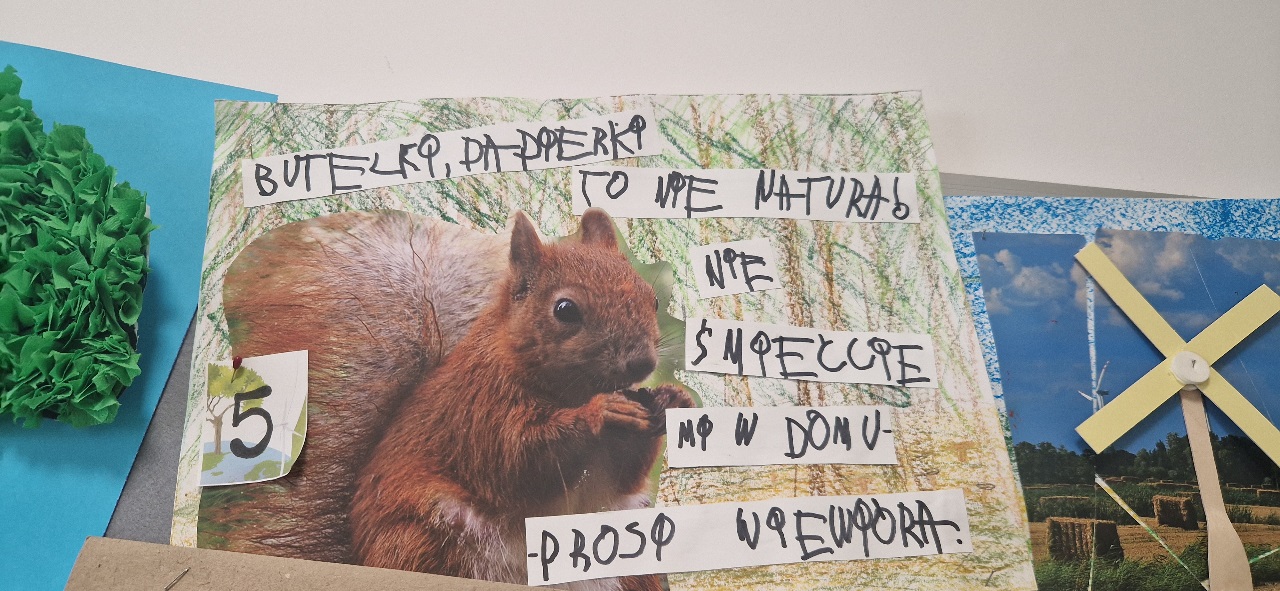 BUTELKI, PA-PIERKI
TO NIE NATURA!
NIE
ŚMIEĆCIE
MI W DOMU-
5
-PROSI WIEWIÓRA.